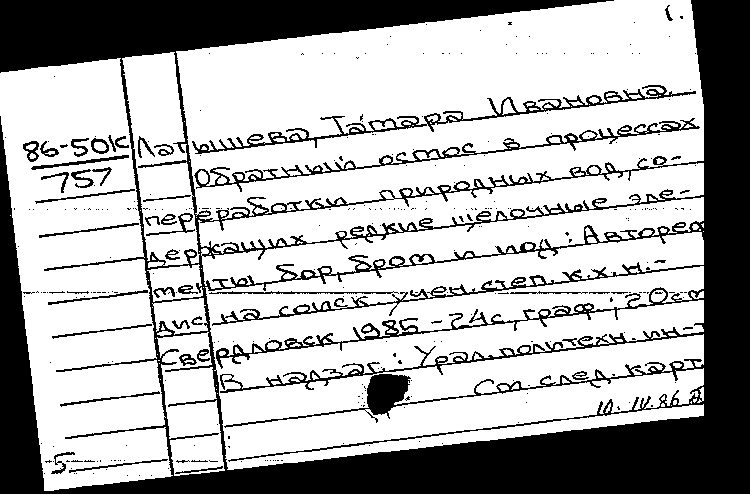 1.
86-50к Латышева, Тамара Ивановна
757 Обратный осмос в процессах
переработки природных вод, со-
держащих редкие щелочные эле-
менты, бор, бром и иод: Автореф
дис на соиск учен. степ. к.х.н.-
Свердловск, 1985 - 24с, граф.; 20см
В надзаг.: Урал. политехн. ин-т
См след. карт.
10.IV.86
5